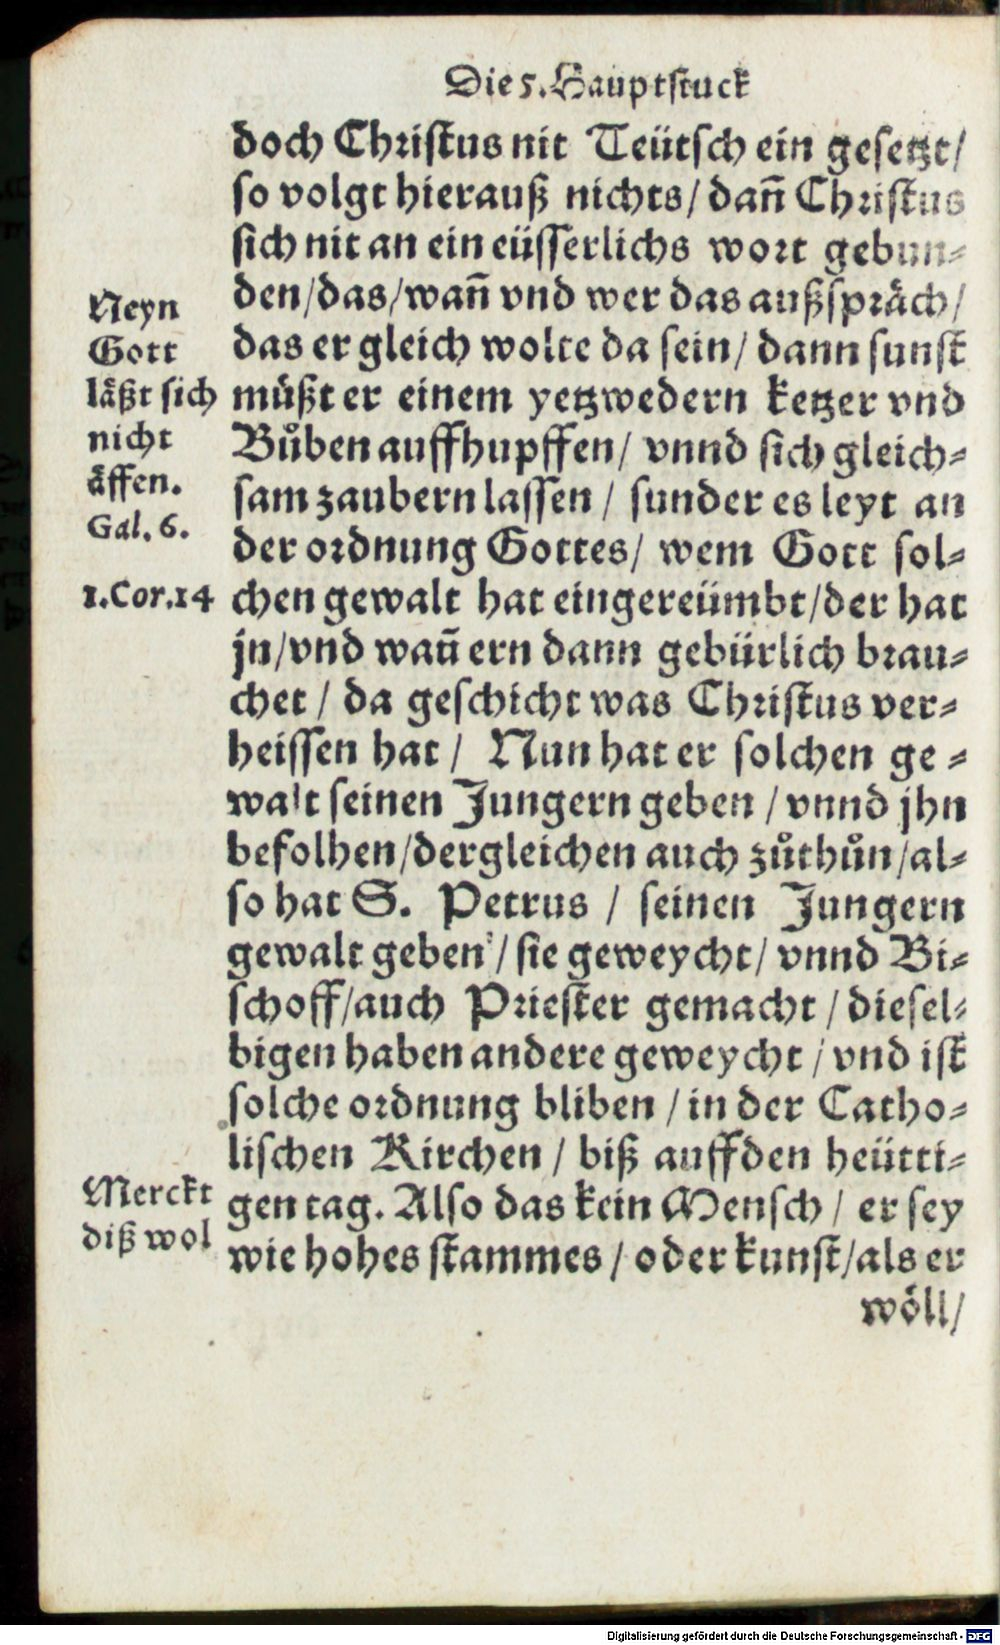 Die 5. Hauptstuck
doch Christus nit Teütsch ein gesetzt/
so volgt hierauß nichts/ dañ Christus
sich nit an ein eüsserlichs wort gebun-
den/das/wañ vnd wer das außspräch/
das er gleich wolte da sein/ dann sunst
müßt er einem yetzwedern ketzer vnd
Bůben auffhupffen/ vnnd sich gleich-
sam zaubern lassen / sunder es leyt an
der ordnung Gottes/ wem Gott sol-
chen gewalt hat eingereümbt/der hat
jn/vnd wañ ern dann gebürlich brau-
chet / da geschicht was Christus ver-
heissen hat / Nun hat er solchen ge-
walt seinen Jungern geben / vnnd jhn
befolhen/dergleichen auch zůthůn/al-
so hat S. Petrus / seinen Jungern
gewalt geben / sie geweycht/ vnnd Bi-
schoff/auch Priester gemacht / diesel-
bigen haben andere geweycht / vnd ist
solche ordnung bliben / in der Catho-
lischen Kirchen / biß auff den heütti-
gen tag. Also das kein Mensch / er sey
wie hohes stammes / oder kunst/als er
wöll/
Neyn
Gott
läßt sich
nicht
äffen.
Gal. 6.
1.Cor.14
Merckt
diß wol
Digitalisierung gefördert durch die Deutsche Forschungsgemeinschaft - DFG